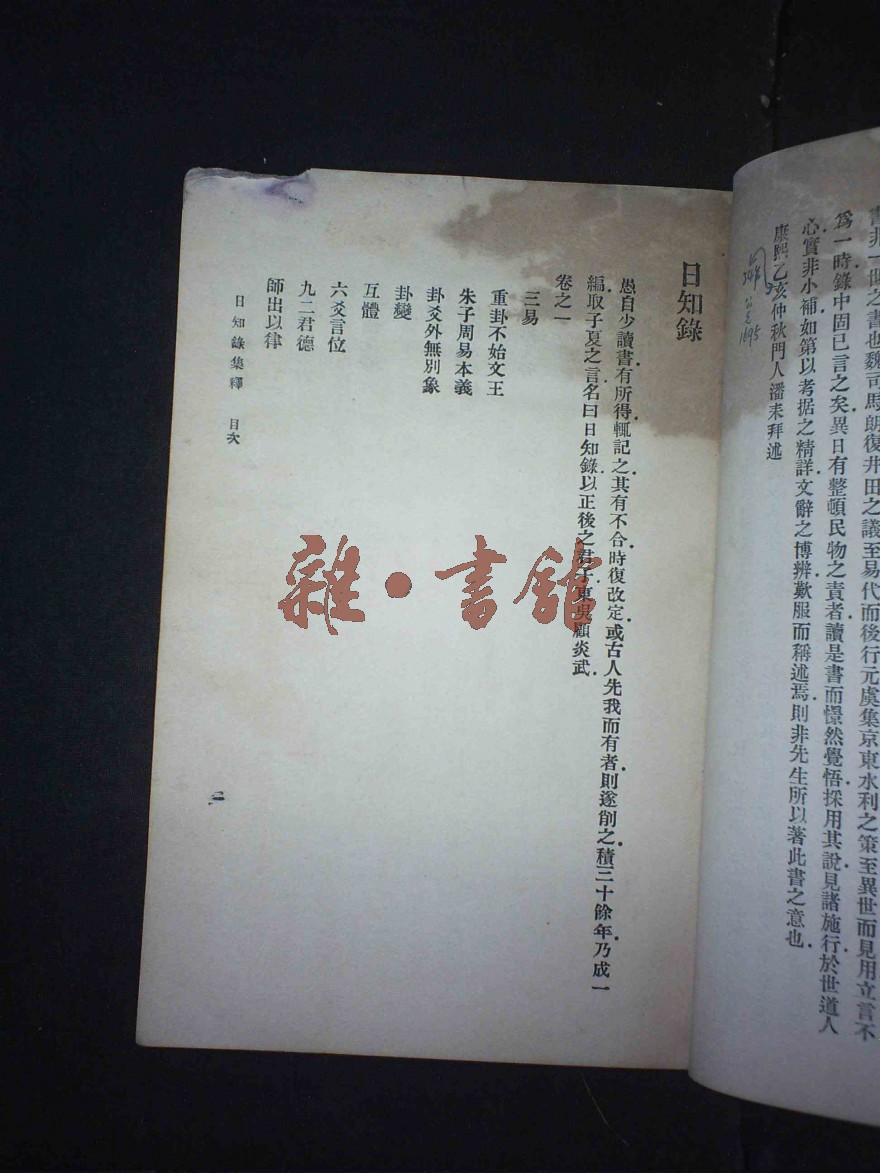 書非一世之書也魏司馬朗復井田之議至易代而後行元虞集京東水利之策至異世而見用立言不
爲一時錄中固已言之矣異日有整頓民物之責者讀是書而憬然覺悟採用其說見諸施行於世道人
心實非小補如第以考据之精詳文辭之博辨歎服而稱述焉則非先生所以著此書之意也
康熙乙亥仲秋門人潘耒拜述
公元
1695
日知錄
愚自少讀書有所得輒記之其有不合時復改定或古人先我而有者則遂削之積三十餘年乃成一
編取子夏之言名曰日知錄以正後之君子東吳顧炎武
卷之一
三易
重卦不始文王
朱子周易本義
卦爻外無別象
卦變
互體
六爻言位
九二君德
師出以律
日知錄集釋 目次
一
雜·書館